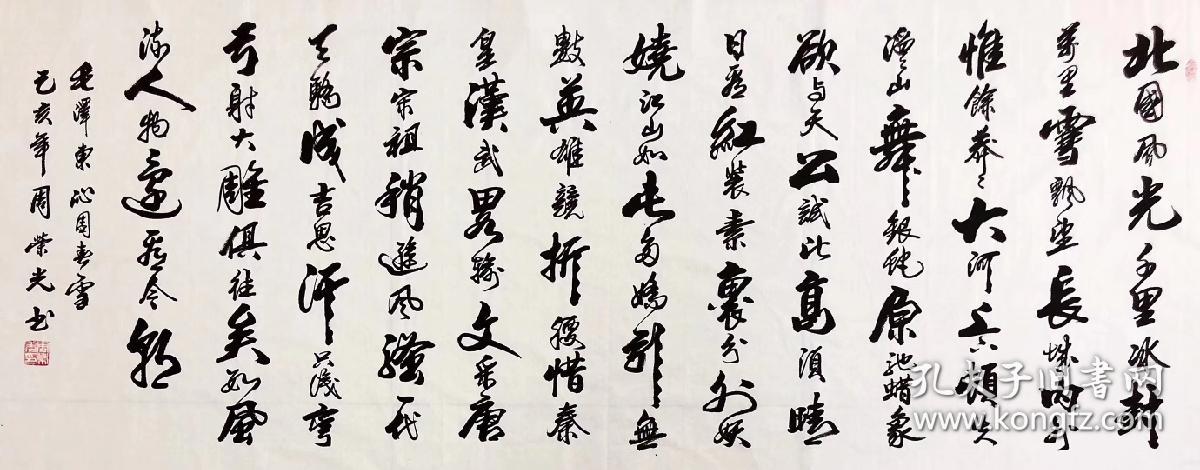 北國風光千里冰封
萬里雪飄望長城内外
惟餘莽〻大河上下頓失
滔〻山舞銀蛇原馳蜡象
欲与天公試比高須晴
日看紅裝素裹分外妖
嬈江山如此多嬌引無
數英雄競折腰惜秦
皇漢武畧輸文采唐
宗宋祖稍遜風騷一代
天驕成吉思汗只識彎
弓射大雕俱往矣数風
流人物還看今朝
毛澤東沁园春雪
己亥年周榮光书
孔夫子旧書网
www.kongfz.com